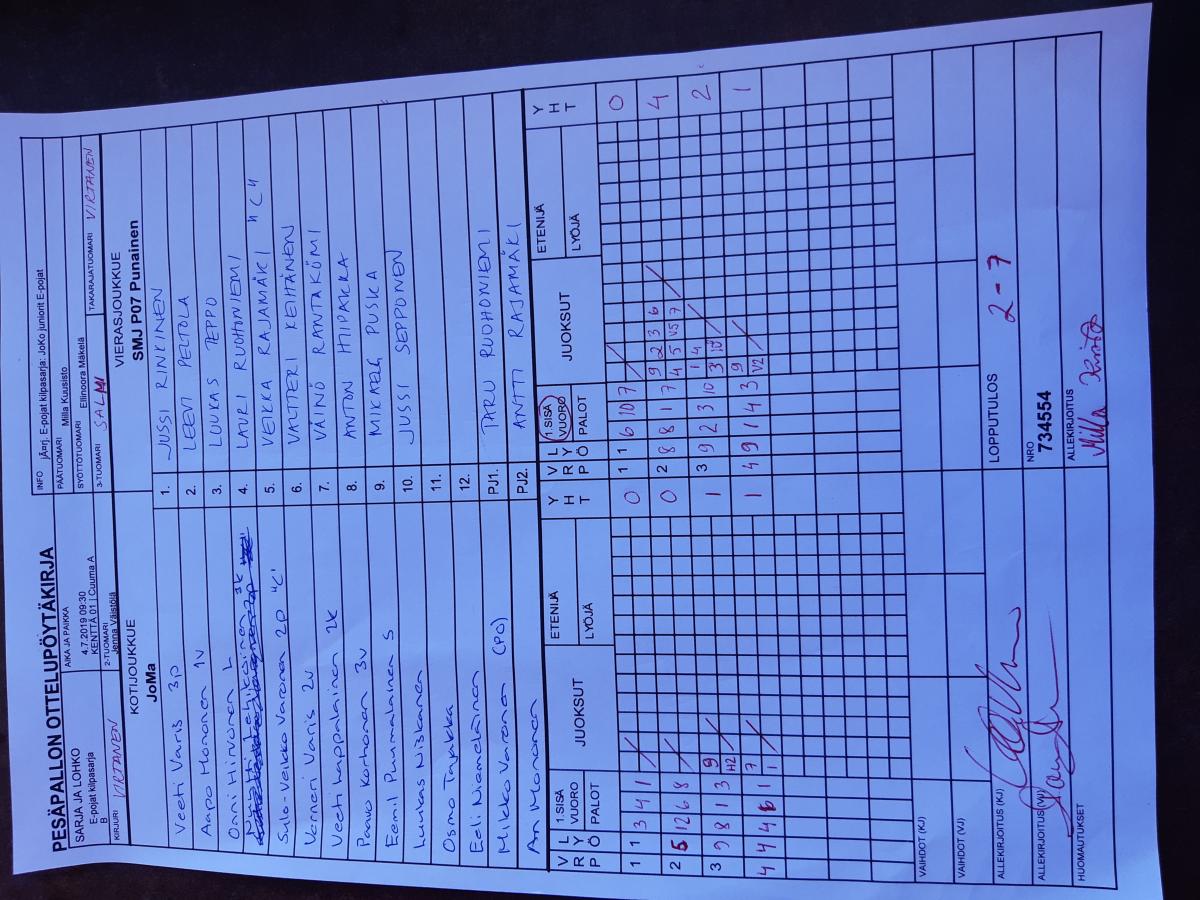 PESÄPALLON OTTELUPÖYTÄKIRJA
SARJA JA LOHKO
E-pojat kilpasarja
B
AIKA JA PAIKKA
4.7.2019 09:30
KENTTÄ 01 | Cuuma A
INFO jÄ¤rj. E-pojat kilpasarja: JoKo juniorit E-pojat
PÄÄTUOMARI Milla Kuusisto
SYÖTTÖTUOMARI Ellinoora Mäkelä
KIRJURI VIRTANEN
2-TUOMARI
Jenna Väistölä
3-TUOMARI SALMI
TAKARAJATUOMARI VIRTANEN
KOTIJOUKKUE
JoMa
VIERASJOUKKUE
SMJ P07 Punainen
Veeti Varis 3p
1. JUSSI RINKINEN
Aapo Mononen 1V
2. LEEVI PELTOLA
Onni Hirvonen L
3. LUUKAS TEPPO
4. LAURI RUOHONIEMI
Sulo-Veikko Varonen 2p "C"
5. VEIKKA RAJAMÄKI "C"
Verneri Varis 2V
6. VALTTERI KEIHÄNEN
Veeti happalainen 2k
7. VÄINÖ RANTAKÖMI
Paavo Korhonen 3v
8. ANTON HIPAKKA
Eemil Pummalainen S
9. MIKAEL PUSKA
Luukas Niskanen
10. JUSSI SEPPONEN
Osmo Taukka
11.
Eeli Niemeläinen
12.
Mikko Varonen (PO)
PJ1. TARU RUOHONIEMI
Ari Mononen
PJ2. ANTTI RAJAMÄKI
VRP LYÖ 1.SISÄVUORO PALOT JUOKSUT ETENIJÄ LYÖJÄ YHT
VRP LYÖ 1.SISÄVUORO PALOT JUOKSUT ETENIJÄ LYÖJÄ YHT
1 1 3 4 1 / 0
1 1 6 10 7 / 0
2 5 12 6 8 / 0
9 2 3 6
2 8 8 1 7 4 5 V5 7 / 4
9
3 9 8 1 3 H2 / 1
1 4
3 9 2 3 10 3 10 / 2
7
4 4 4 6 1 1 / 1
9
4 9 1 4 3 V2 / 1
VAIHDOT (KJ)
VAIHDOT (VJ)
ALLEKIRJOITUS (KJ)
LOPPUTULOS 2 - 7
ALLEKIRJOITUS (VJ)
NRO
734554
HUOMAUTUKSET
ALLEKIRJOITUS
Milla